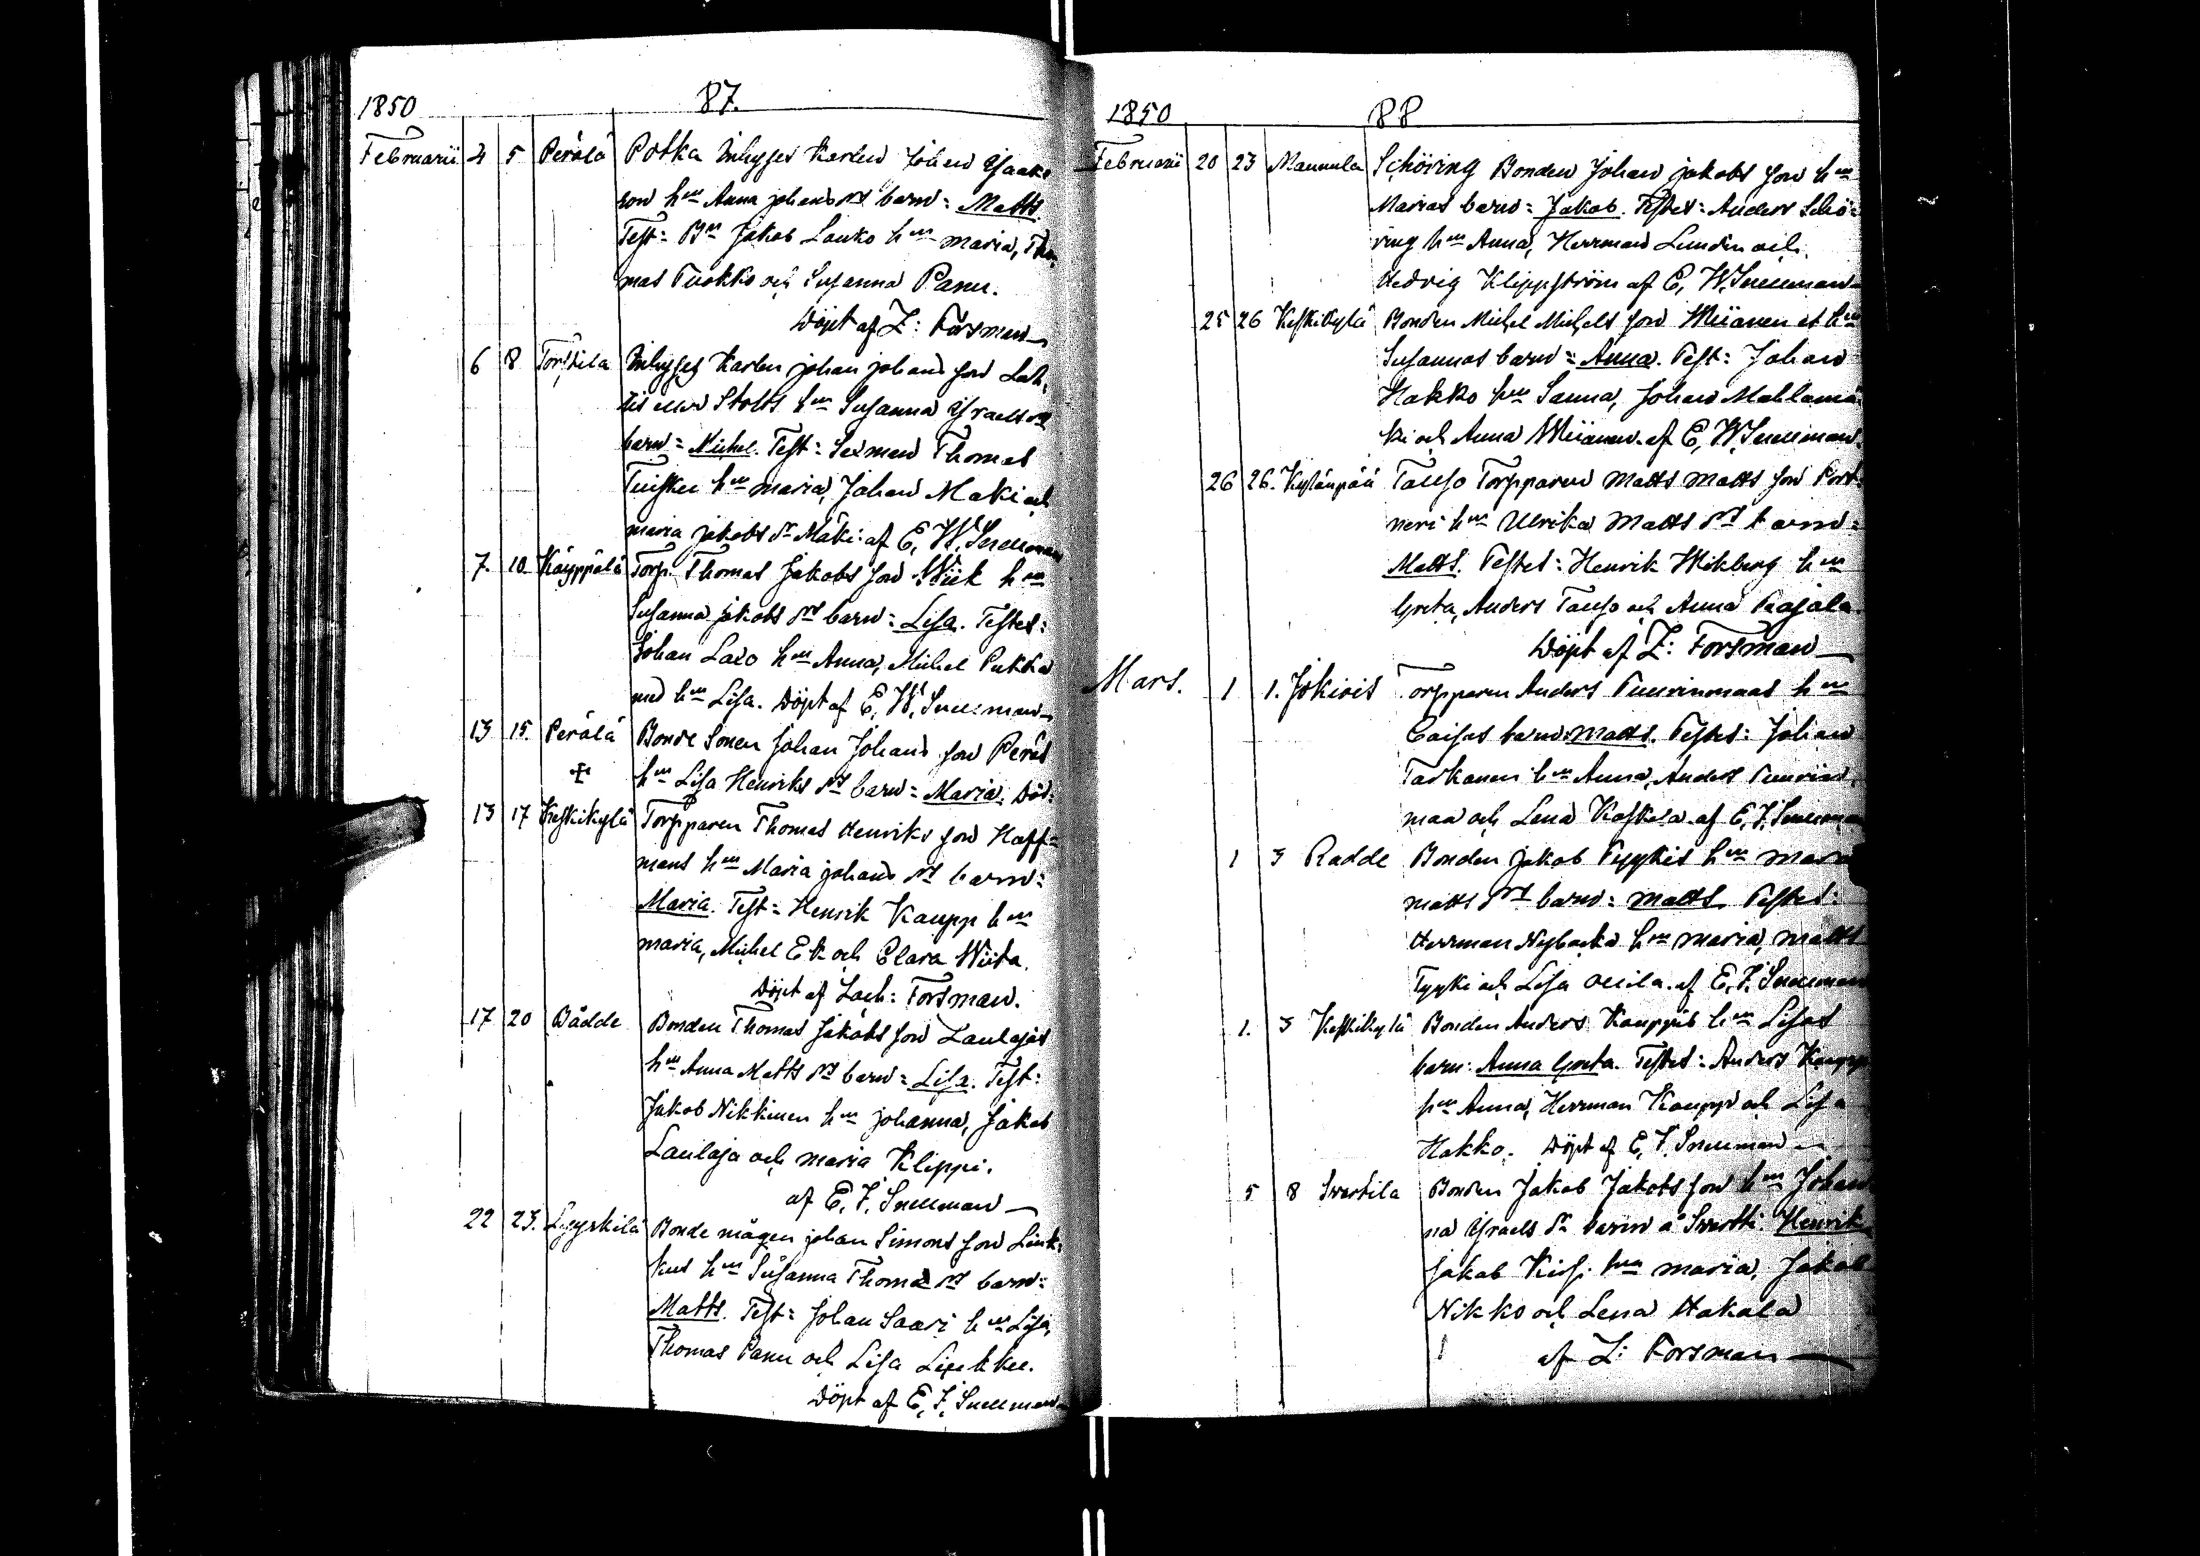 1850 87.
Februarii 4 5 Perälä Potka Inhyses Karlen Johan Isaaks
son hu Anna johans dr barn: Matts.
Test: Bn Jakob Lauko hu maria, Tho,
mas Tuokko och Susanna Panu.
Döpt af Z: Forsman
6 8 Torstila Inhyses Karlen johan johans son Lah,
tis eller Stolts hu Susanna Israels dr
barn: Michel. Test: Sexman Thomas
Tuisku hu maria, Johan Maki och
maria jakobs dr Mäki af E, W, Snellman
7. 10. Käyppälä Torp. Thomas Jakobs son Wiik hu
Susanna jakobs dr barn: Lisa. Testes:
Johan Laxo hu Anna, Michel Pukka
med hu Lisa. Döpt af E, W, Snellman
13 15. Perälä Bonde Sonen Johan Johans son Peräs
+ hu Lisa Henriks dr barn: Maria. Död:
13 17 Keskikylä Torpparen Thomas Henriks son Haff=
mans hu Maria johans dr barn:
Maria. Test: Henrik Kaupp hu
maria, Michel Ek och Clara Wiita.
Döpt af Zach: Forsman.
17 20 Rådde Bonden Thomas Jakobs son Laulajas
hu Anna Matts dr barn: Lisa. Test:
Jakob Nikkinen hu johanna, Jakob
Laulaja och maria Klippi.
af E, F, Snellman
22 23. Lyyskilä Bonde mågen johan Simons son Liuk,
kus hu Susanna Thomas dr barn:
Matts. Test: Johan Saari hu Lisa,
Thomas Panu och Lisa
Döpt af E, F, Snellman
1850 88
Februarii 20 23 Mannula Schöring Bonden Johan jakobs son hu
Marias barn: Jakob. Testes: Anders Schö=
ring hu Anna, Herrman Lunden och
Hedvig Klippström af E, W, Snellman
25 26 Keskikylä Bonden Michel Michels son Wiianen et hu
Susannas barn: Anna. Test: Johan
Hakko hu Sanna, Johan Mahlamä
ki och Anna Wiianen. af E, W, Snellman.
26 26. Kylänpää Tauso Torpparen Matts Matts son Port
neri hu Ulrika Matts dr barn:
Matts. Testes: Henrik Wikberg hu
Greta, Anders Tauso och Anna Pajala
Döpt af Z: Forsman
Mars. 1 1. Jokivis Torpparen Anders Puurinmaas hu
Caisas barn: Matts. Testes: Johan
Tarkanen hu Anna, Anders Puurin,
maa och Lena Koskela af E, F, Snellman
1 3 Radde Bonden Jakob Tyykis hu maria
matts dr barn: Matts. Testes:
Herrman Nybacka hu maria, matts
Tyyki och Lisa Ollila. af E, F, Snellman
1. 3 Keskikylä Bonden Anders Kauppis hu Lisas
barn: Anna Greta. Testes: Anders Kaupp
hu Anna, Herrman Kauppi och Lisa
Hakko. Döpt af E, F, Snellman
5 8 Svartila Bonden Jakob Jakobs son hu Johan
na Israels dr barn å Svartti: Henrik
Jakob Kirsi hu maria, Jakob
Nikko och Lena Hakala
af Z: Forsman